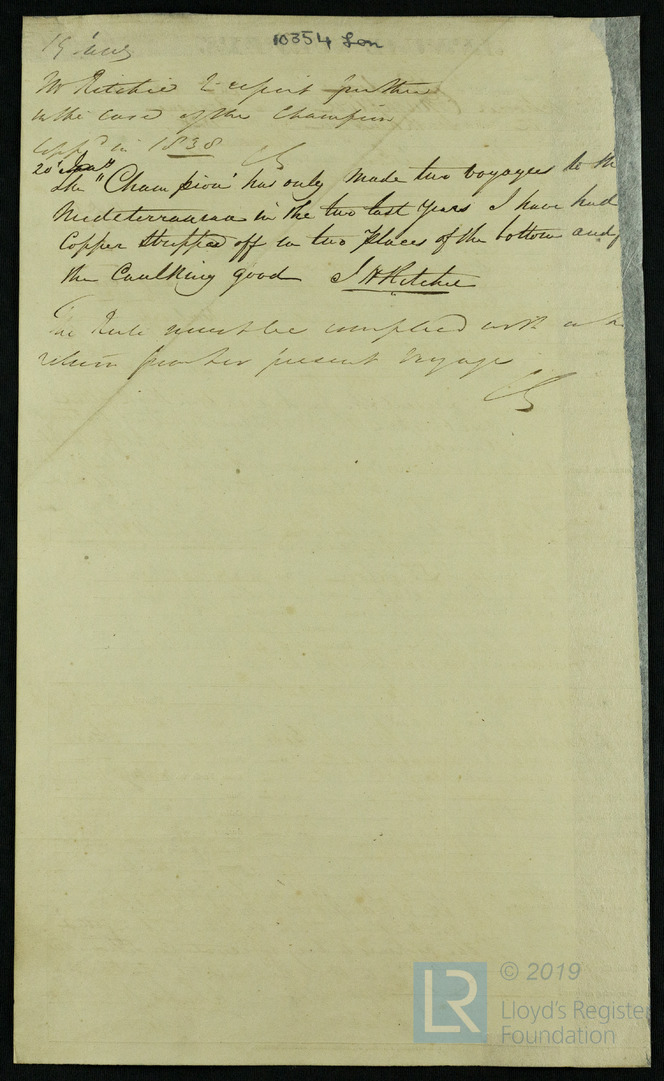 10354 Lon
Mr Ritchie to report further
in the case of the Champion
Copp^d in 1838
20
The "Champion" has only made two voyages to the
Mediterranean in the two last years I have had
Copper stripped off in two places of the bottom and f
the Caulking good J H Ritchie
The Rule must be complied with
return from her present Voyage
© 2019
LR
Lloyd's Registe
Foundation